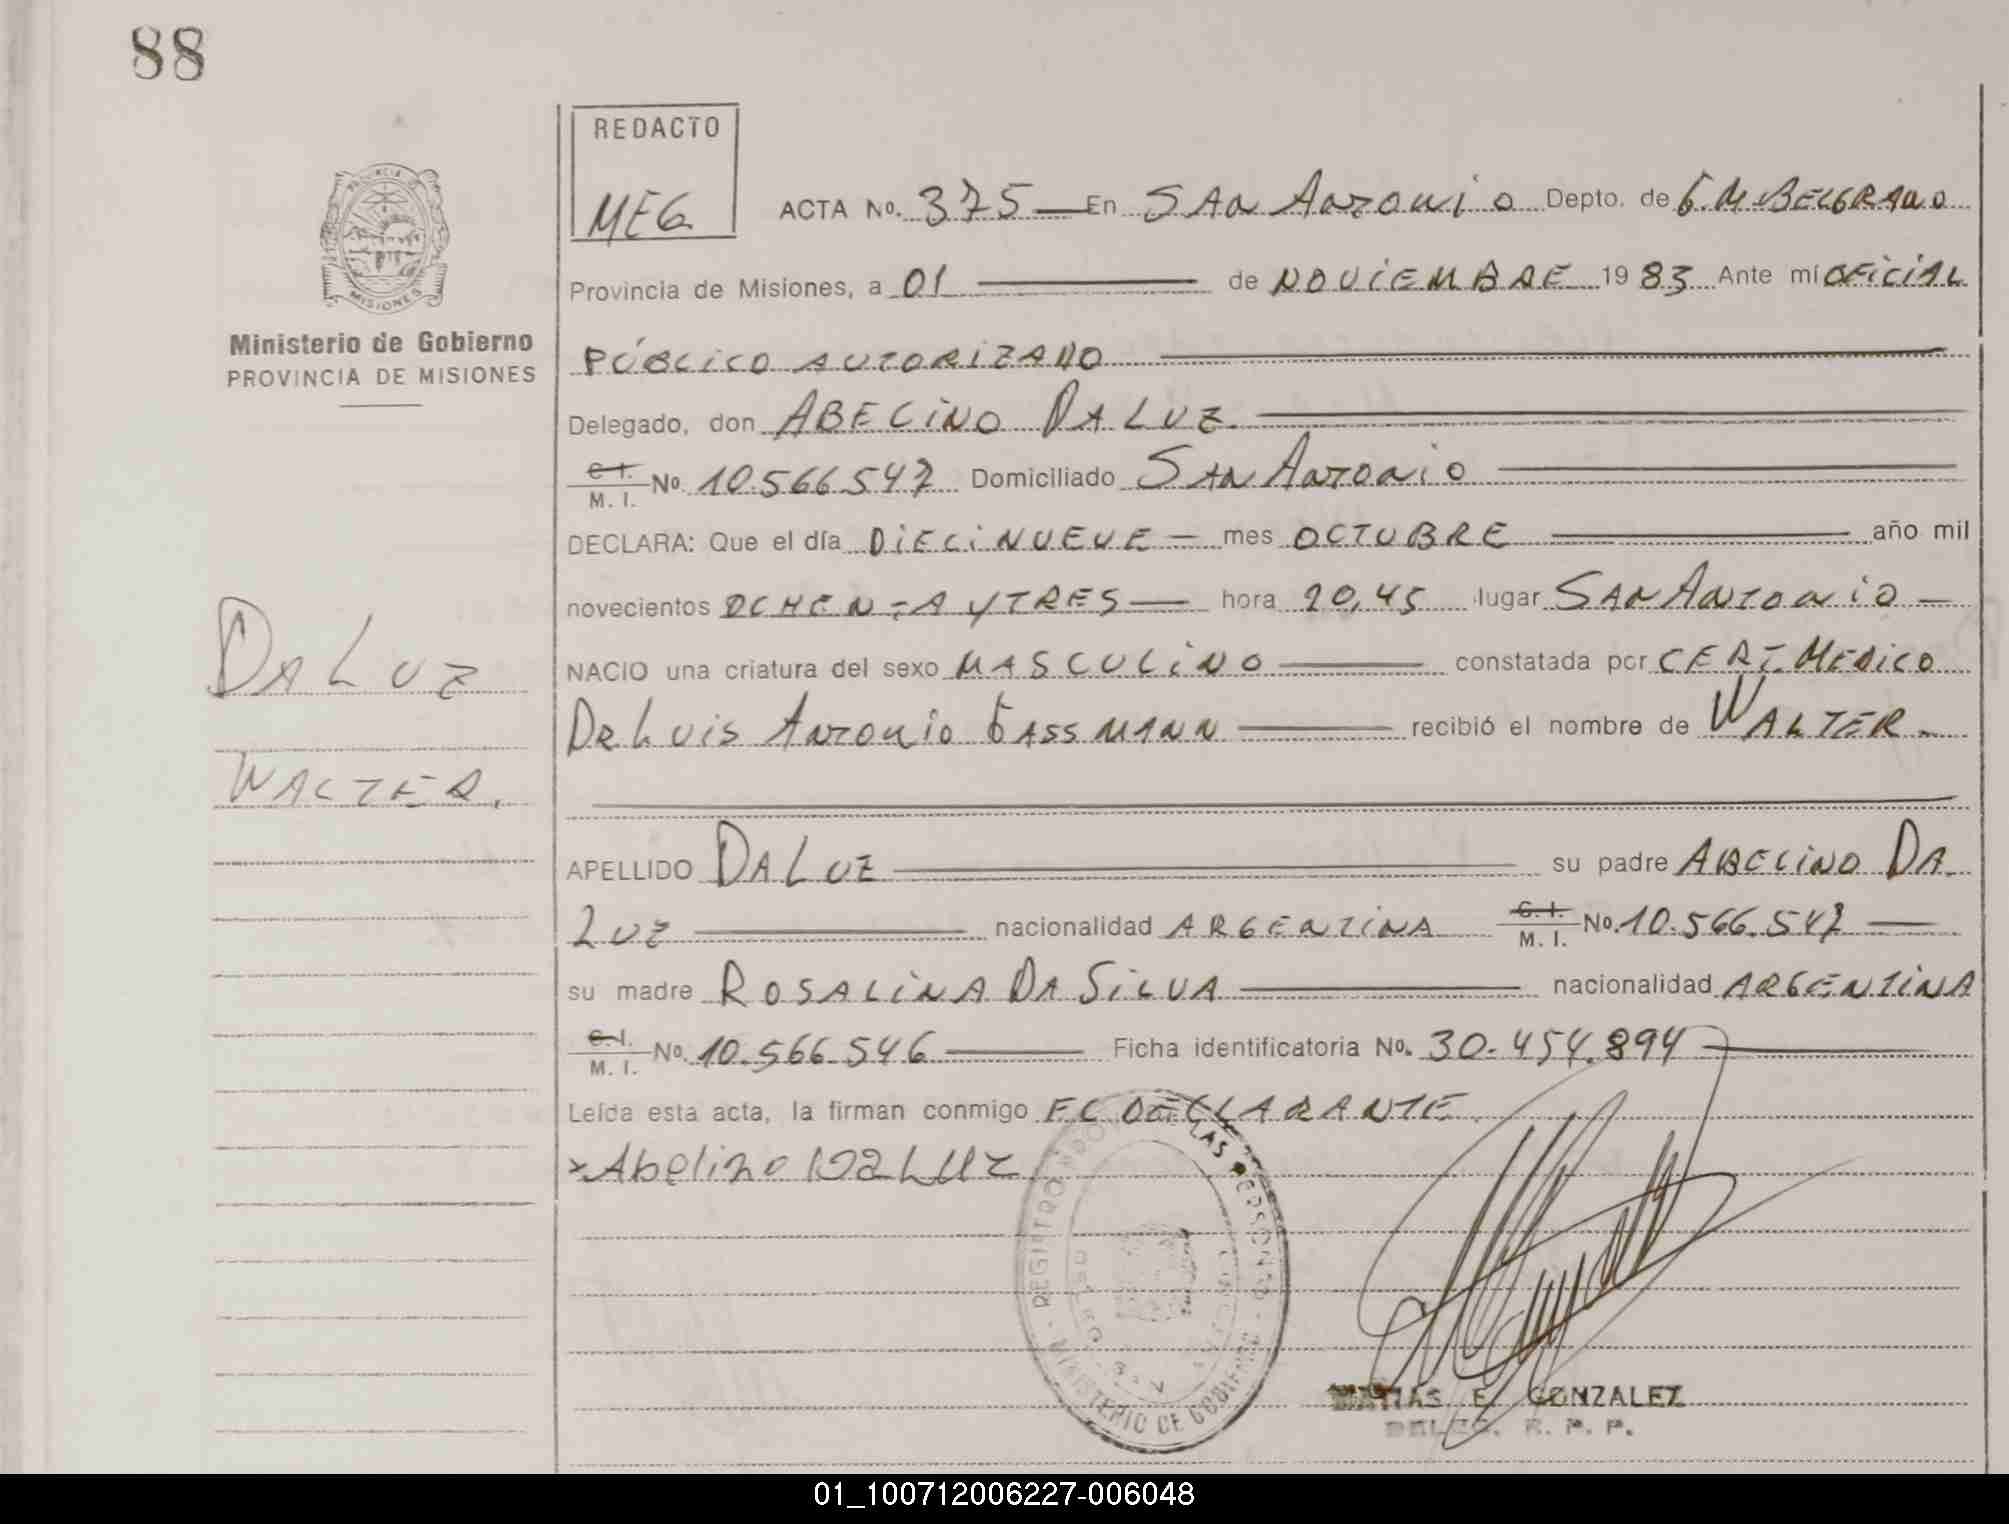 88
REDACTO
MEG
PROVINCIA DE
MISIONES
Ministerio de Gobierno
PROVINCIA DE MISIONES
ACTA No. 375 En SAN ANTONIO Depto. de G.M.BELGRANO
Provincia de Misiones, a 01 de NOVIEMBRE 1983 Ante mí OFICIAL
PÚBLICO AUTORIZADO
Delegado, don ABELINO DA LUZ
C. I. M. I. No. 10.566.547 Domiciliado SAN ANTONIO
DECLARA: Que el día DIECINUEVE mes OCTUBRE año mil
novecientos OCHENTAYTRES hora 20,45 lugar SAN ANTONIO
NACIO una criatura del sexo MASCULINO constatada por CERT. MEDICO
DR LUIS ANTONIO GASSMANN recibió el nombre de WALTER.
DA LUZ
WALTER.
APELLIDO DA LUZ su padre ABELINO DA
LUZ nacionalidad ARGENTINA C. I. M. I. No. 10.566.547
su madre ROSALINA DA SILVA nacionalidad ARGENTINA
C. I. M. I. No. 10.566.546 Ficha identificatoria No. 30.454.894
Leída esta acta, la firman conmigo EL DECLARANTE
x Abelino Da LUZ
REGISTRO LAS PERSONAS
MINISTERIO DE GOBIERNO
MATIAS E. GONZALEZ
DELEG. R. P. P.
01_100712006227-006048